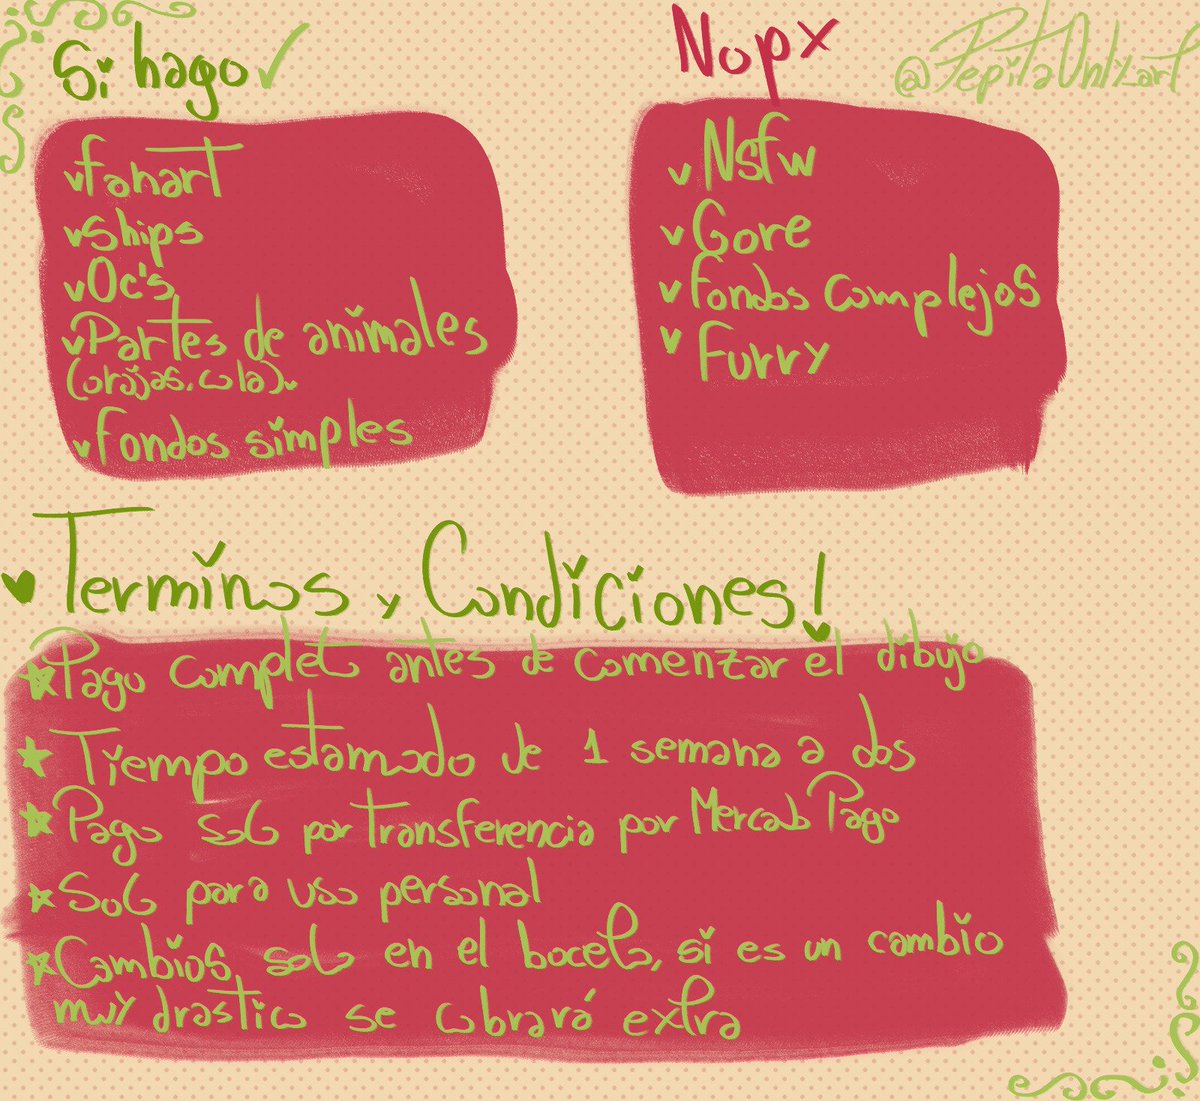 Si hago
fanart
Ships
Oc's
Partes de animales
(orejas, cola).
Fondos simples
Nop x
@PepitaOnly_art
Nsfw
Gore
Fondos complejos
Furry
Terminos y Condiciones!
Pago completo antes de comenzar el dibujo
Tiempo estamado de 1 semana a dos
Pago solo por transferencia por Mercado Pago
Solo para uso personal
Cambios, solo en el boceto, si es un cambio
muy drastico se cobrará extra